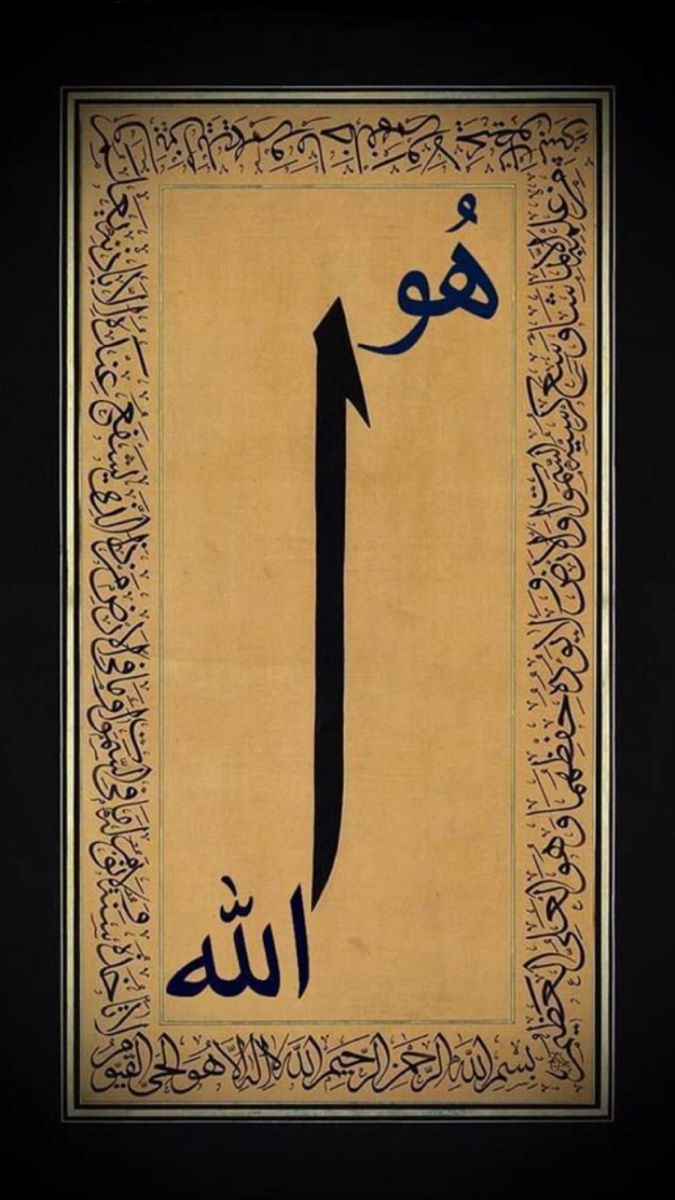 هُو
ا
الله
بسم الله الرحمن الرحيم الله لا اله الا هو الحي القيوم
لا تاخذه سنة ولا نوم له ما في السموات وما في الارض من ذا الذي يشفع عنده الا باذنه يعلم
ما بين ايديهم وما خلفهم ولا يحيطون بشيء
من علمه الا بما شاء وسع كرسيه السموات والارض ولا يؤده حفظهما وهو العلي العظيم